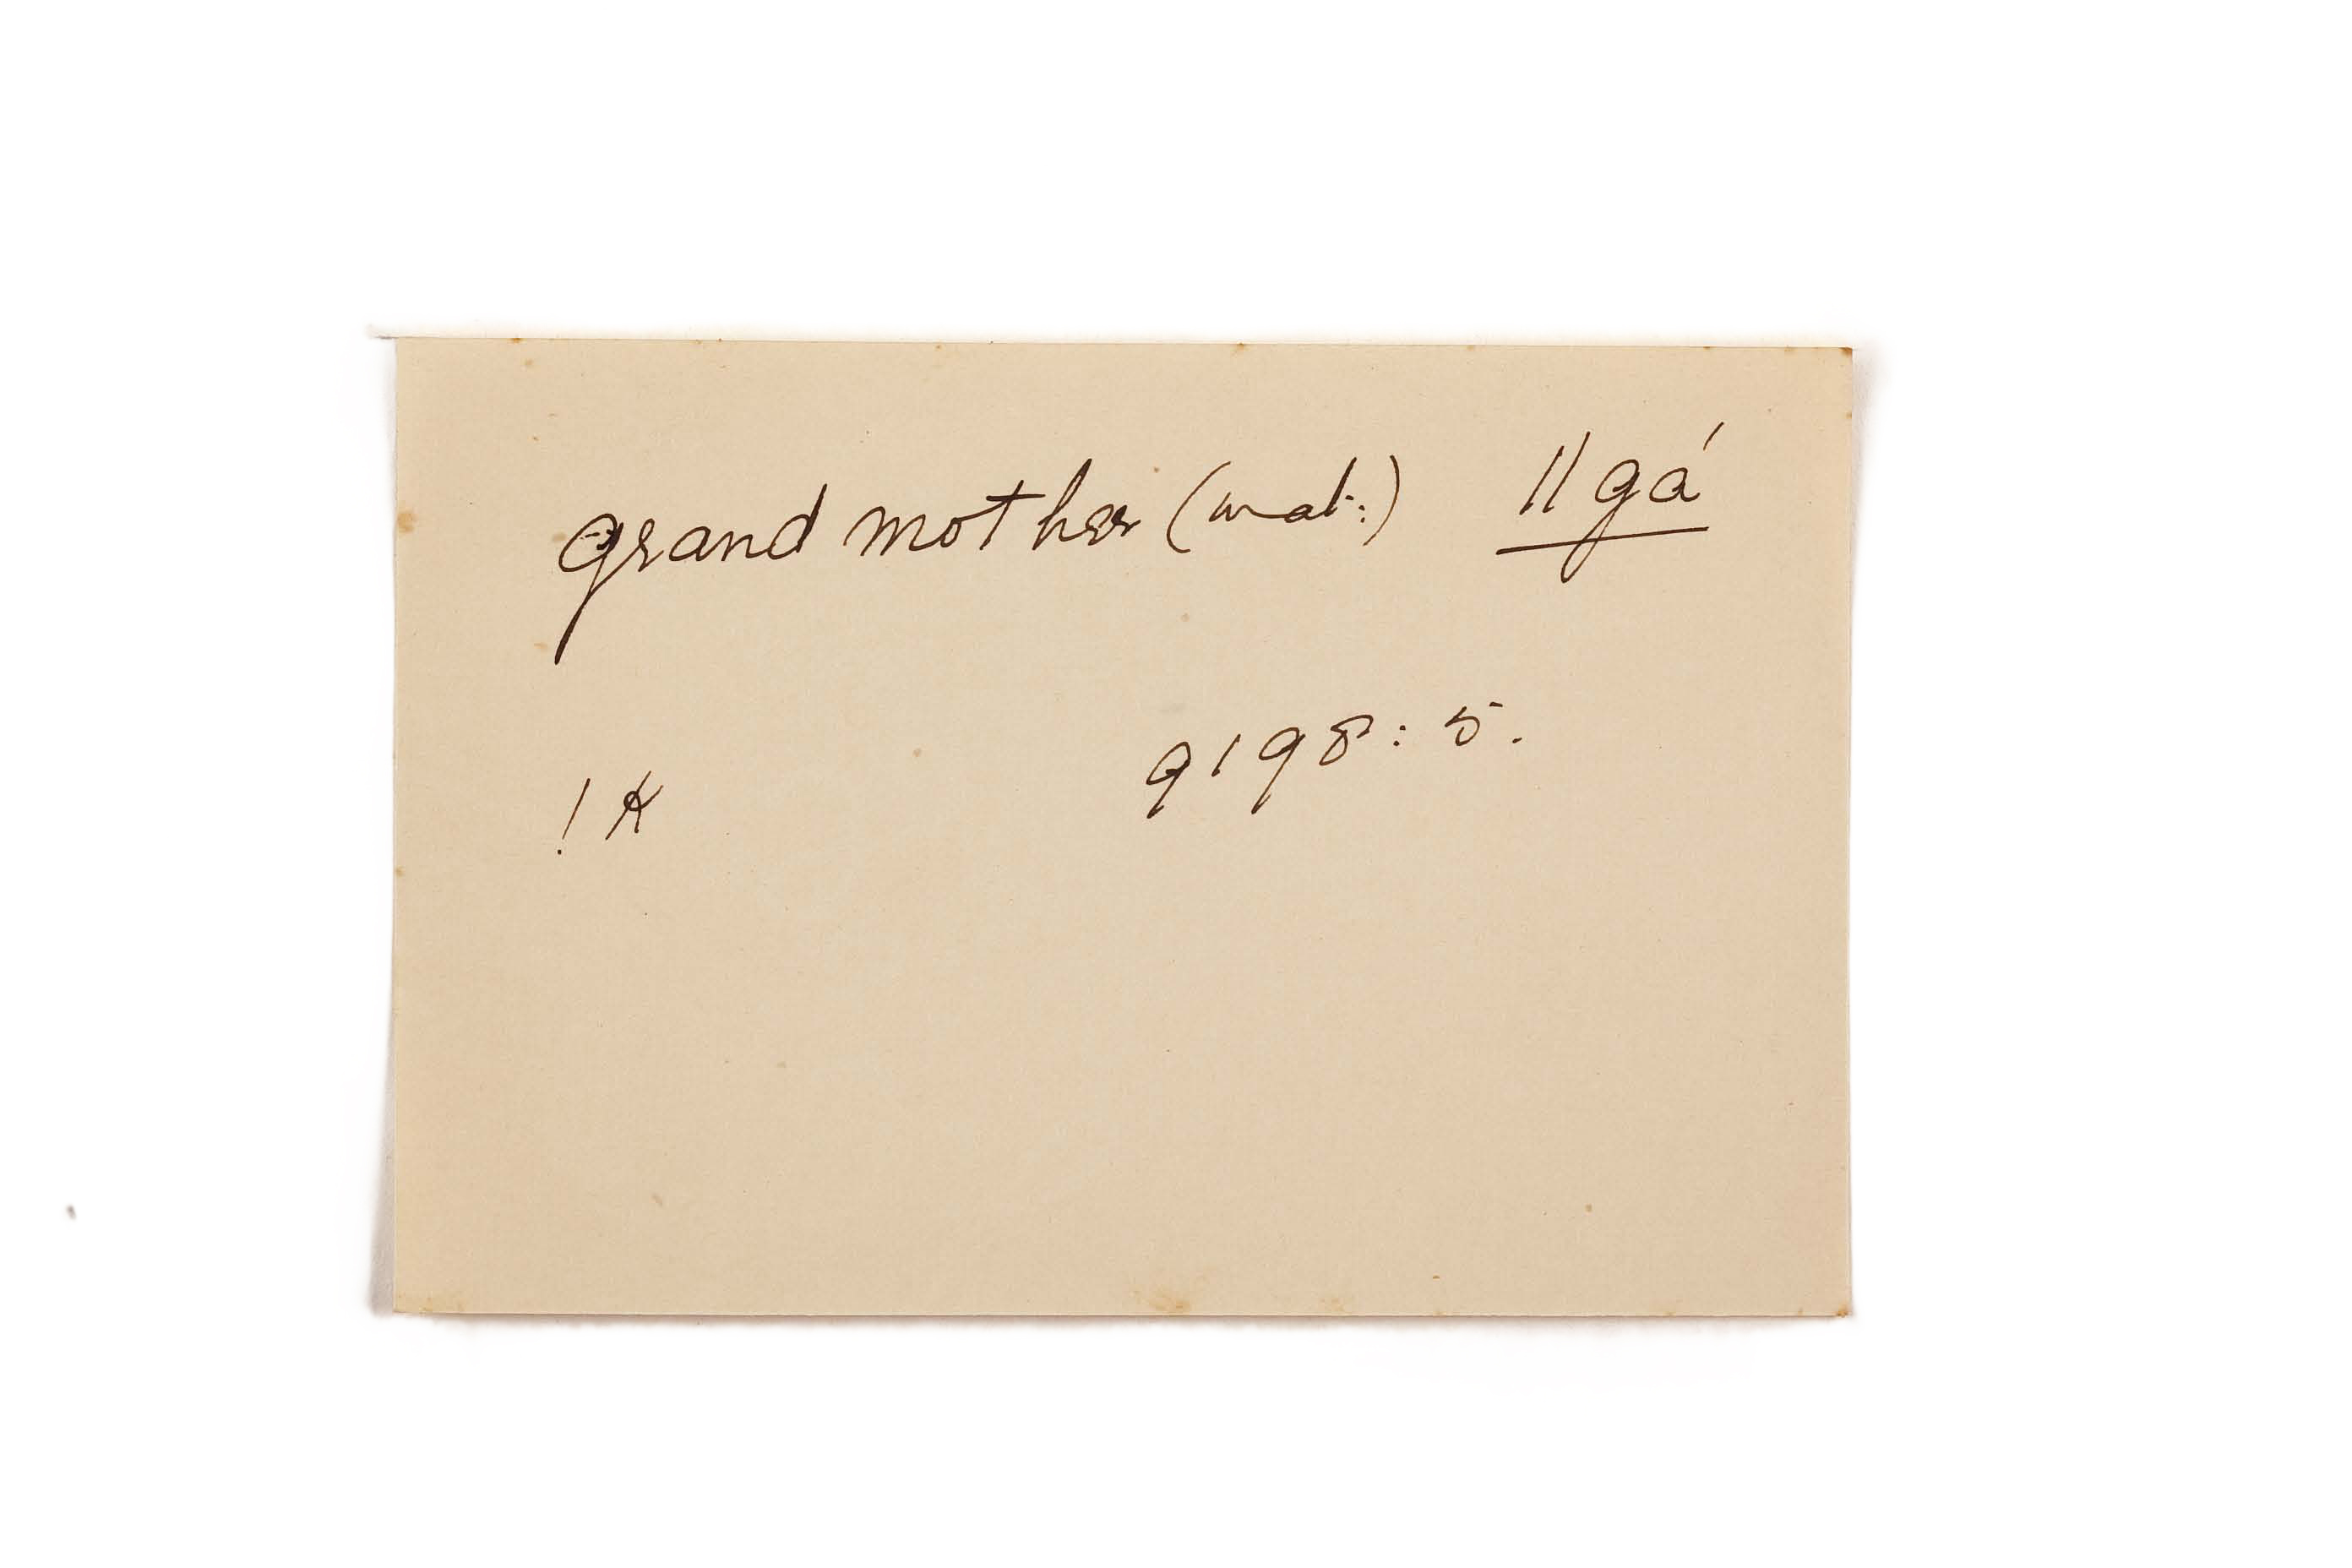 grand mother (mat:) ||gá
9198:5.
!K